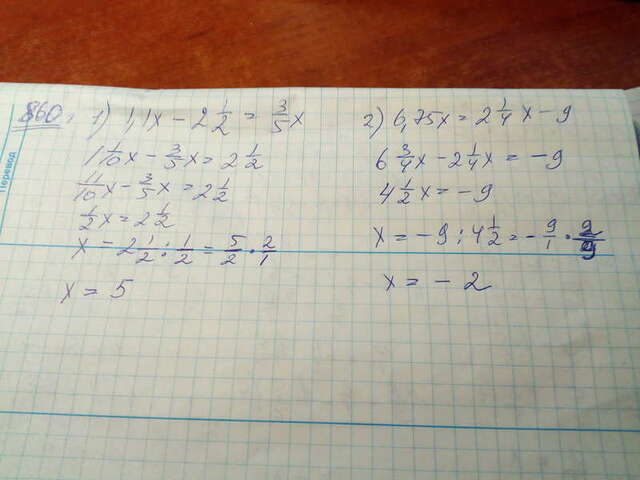 860. 1) 1,1x - 2 1/2 = 3/5 x
1 1/10 x - 3/5 x = 2 1/2
11/10 x - 3/5 x = 2 1/2
1/2 x = 2 1/2
x = 2 1/2 : 1/2 = 5/2 · 2/1
x = 5
2) 6,75x = 2 1/4 x - 9
6 3/4 x - 2 1/4 x = -9
4 1/2 x = -9
x = -9 : 4 1/2 = - 9/1 · 2/9
x = -2
Перевод